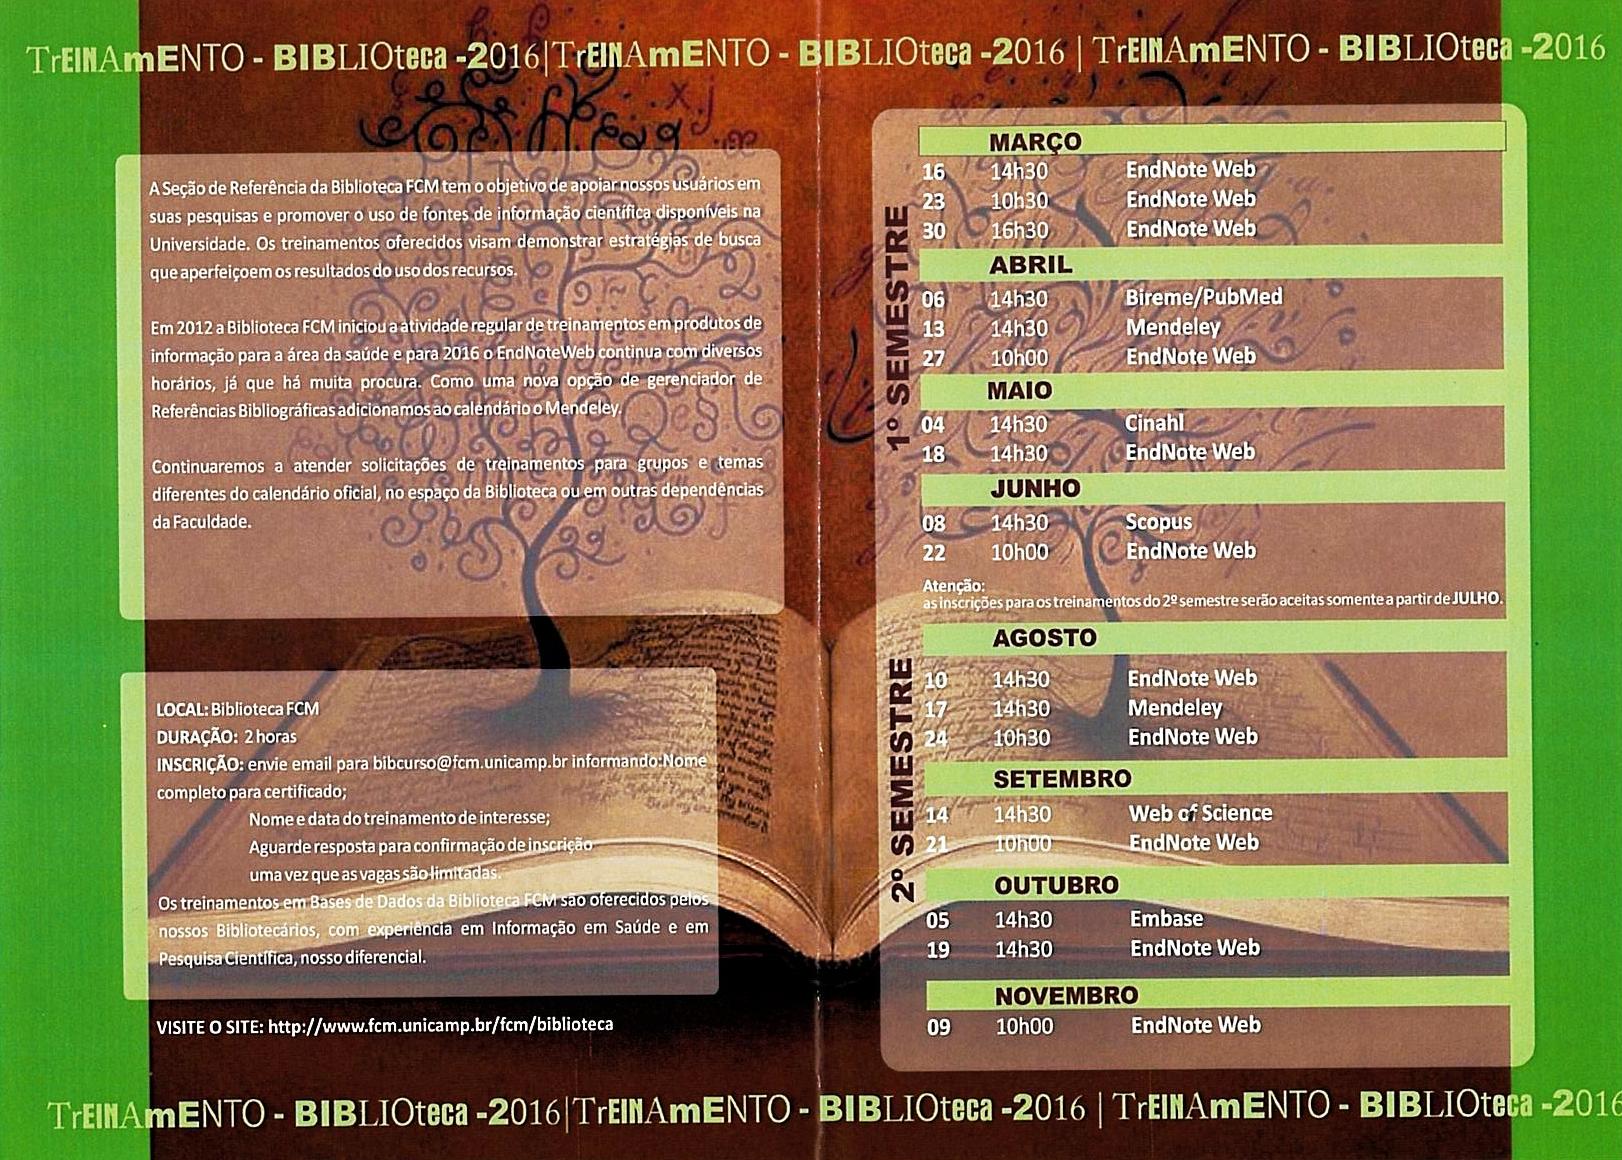 TrEINAmENTO - BIBLIOteca -2016|TrEINAmENTO - BIBLIOteca -2016 | TrEINAmENTO - BIBLIOteca -2016
A Seção de Referência da Biblioteca FCM tem o objetivo de apoiar nossos usuários em
suas pesquisas e promover o uso de fontes de informação científica disponíveis na
Universidade. Os treinamentos oferecidos visam demonstrar estratégias de busca
que aperfeiçoem os resultados do uso dos recursos.
Em 2012 a Biblioteca FCM iniciou a atividade regular de treinamentos em produtos de
informação para a área da saúde e para 2016 o EndNoteWeb continua com diversos
horários, já que há muita procura. Como uma nova opção de gerenciador de
Referências Bibliográficas adicionamos ao calendário o Mendeley.
Continuaremos a atender solicitações de treinamentos para grupos e temas
diferentes do calendário oficial, no espaço da Biblioteca ou em outras dependências
da Faculdade.
LOCAL: Biblioteca FCM
DURAÇÃO: 2 horas
INSCRIÇÃO: envie email para bibcurso@fcm.unicamp.br informando:Nome
completo para certificado;
Nome e data do treinamento de interesse;
Aguarde resposta para confirmação de inscrição
uma vez que as vagas são limitadas.
Os treinamentos em Bases de Dados da Biblioteca FCM são oferecidos pelos
nossos Bibliotecários, com experiência em Informação em Saúde e em
Pesquisa Científica, nosso diferencial.
VISITE O SITE: http://www.fcm.unicamp.br/fcm/biblioteca
1º SEMESTRE
MARÇO
16 14h30 EndNote Web
23 10h30 EndNote Web
30 16h30 EndNote Web
ABRIL
06 14h30 Bireme/PubMed
13 14h30 Mendeley
27 10h00 EndNote Web
MAIO
04 14h30 Cinahl
18 14h30 EndNote Web
JUNHO
08 14h30 Scopus
22 10h00 EndNote Web
Atenção:
as inscrições para os treinamentos do 2º semestre serão aceitas somente a partir de JULHO.
2º SEMESTRE
AGOSTO
10 14h30 EndNote Web
17 14h30 Mendeley
24 10h30 EndNote Web
SETEMBRO
14 14h30 Web of Science
21 10h00 EndNote Web
OUTUBRO
05 14h30 Embase
19 14h30 EndNote Web
NOVEMBRO
09 10h00 EndNote Web
TrEINAmENTO - BIBLIOteca -2016|TrEINAmENTO - BIBLIOteca -2016 | TrEINAmENTO - BIBLIOteca -2016